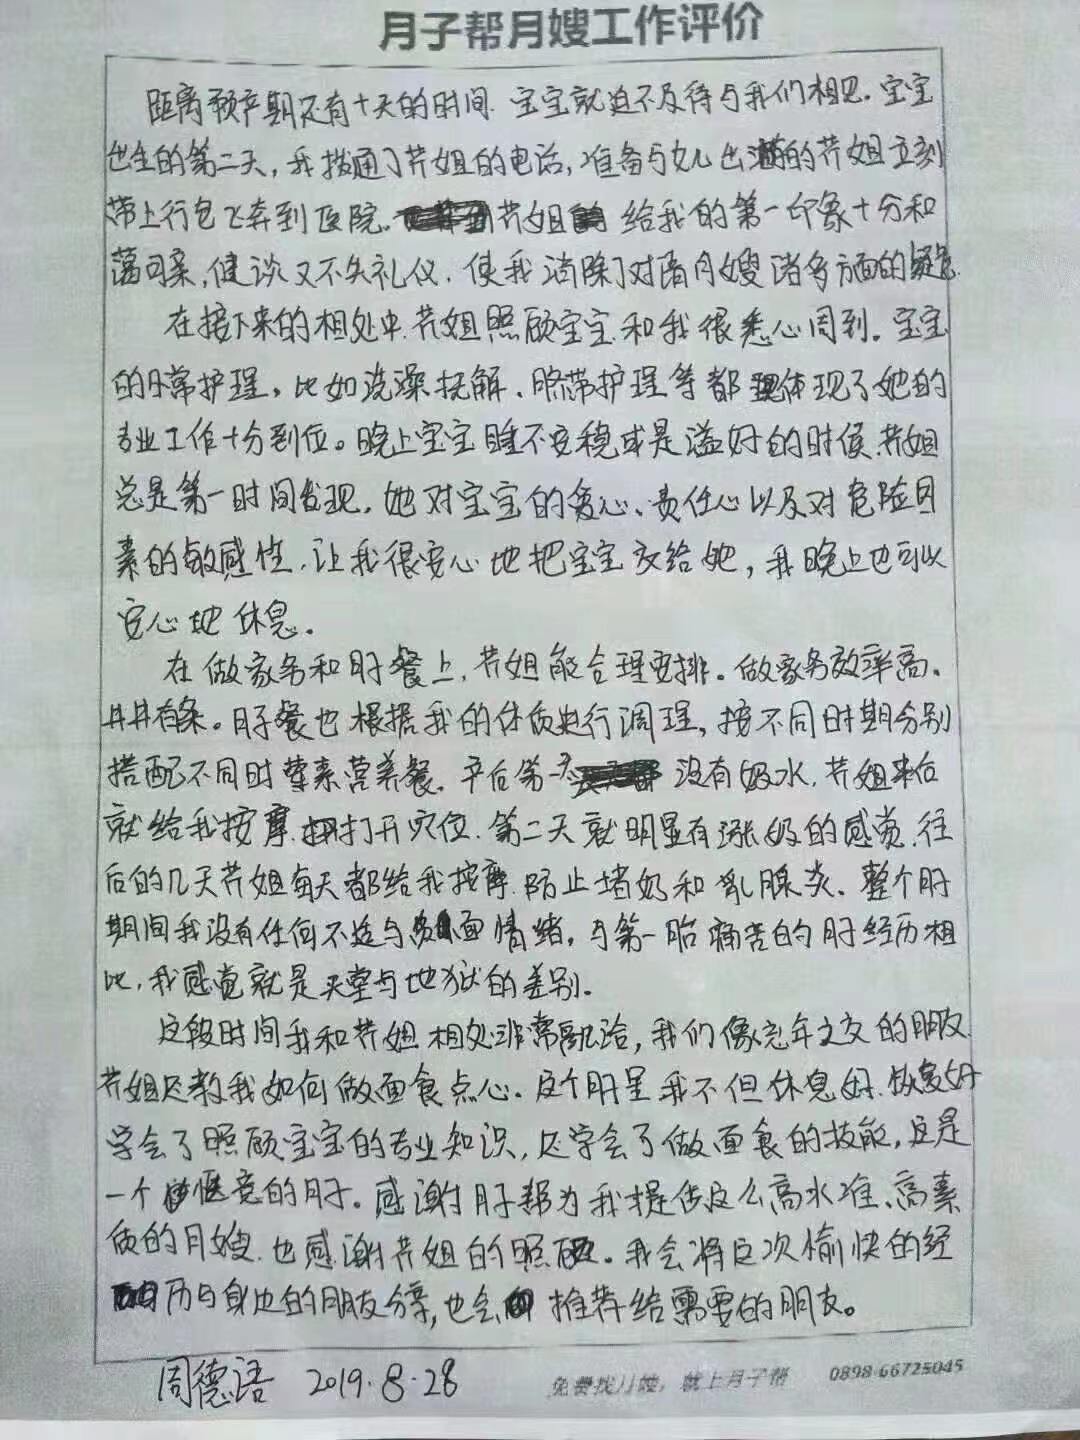 月子帮月嫂工作评价
距离预产期还有十天的时间.宝宝就迫不及待与我们相见.宝宝
出生的第二天，我拨通了芹姐的电话，准备与女儿出游的芹姐立刻
带上行包飞奔到医院.芹姐给我的第一印象十分和
蔼可亲，健谈又不失礼仪.使我消除了对请月嫂诸多方面的疑虑.
在接下来的相处中.芹姐照顾宝宝和我很悉心周到。宝宝
的日常护理，比如洗澡抚触、脐带护理等都体现了她的
专业工作十分到位。晚上宝宝睡不安稳或是溢奶的时候.芹姐
总是第一时间发现，她对宝宝的爱心、责任心以及对危险因
素的敏感性.让我很安心地把宝宝交给她，我晚上也可以
安心地休息。
在做家务和月子餐上，芹姐能合理安排。做家务效率高.
井井有条。月子餐也根据我的体质进行调理，按不同时期分别
搭配不同时荤素营养餐.产后第一天没有奶水.芹姐来后
就给我按摩.打开穴位.第二天就明显有涨奶的感觉.往
后的几天芹姐每天都给我按摩.防止堵奶和乳腺炎.整个月子
期间我没有任何不适与负面情绪，与第一胎痛苦的月子经历相
比，我感觉就是天堂与地狱的差别.
这段时间我和芹姐相处非常融洽，我们像忘年之交的朋友.
芹姐还教我如何做面食点心。这个月子里我不但休息好.恢复好
学会了照顾宝宝的专业知识，还学会了做面食的技能，这是
一个惬意的月子。感谢月子帮为我提供这么高水准、高素
质的月嫂.也感谢芹姐的照顾。我会将这次愉快的经
历与身边的朋友分享，也会推荐给需要的朋友。
周德语 2019.8.28
免费找月嫂，就上月子帮 0898-66725045